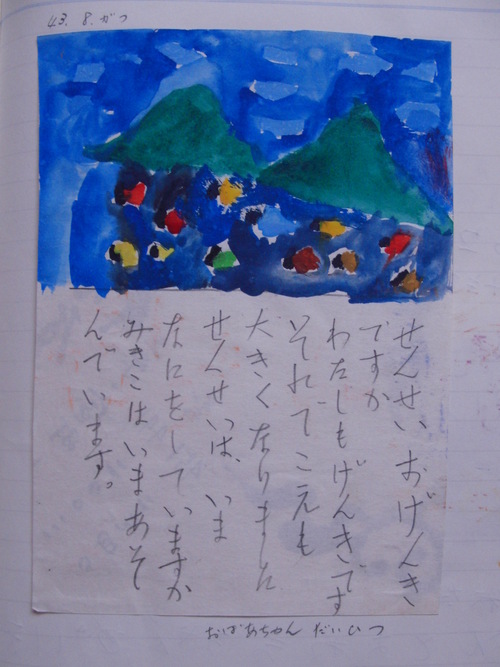 43. 8. がつ
せんせい おげんき
ですか
わたしもげんきです
それでこえも
大きくなりました
せんせいは、いま
なにをしていますか
みきこはいまあそ
んでいます。
おばあちゃん だいひつ